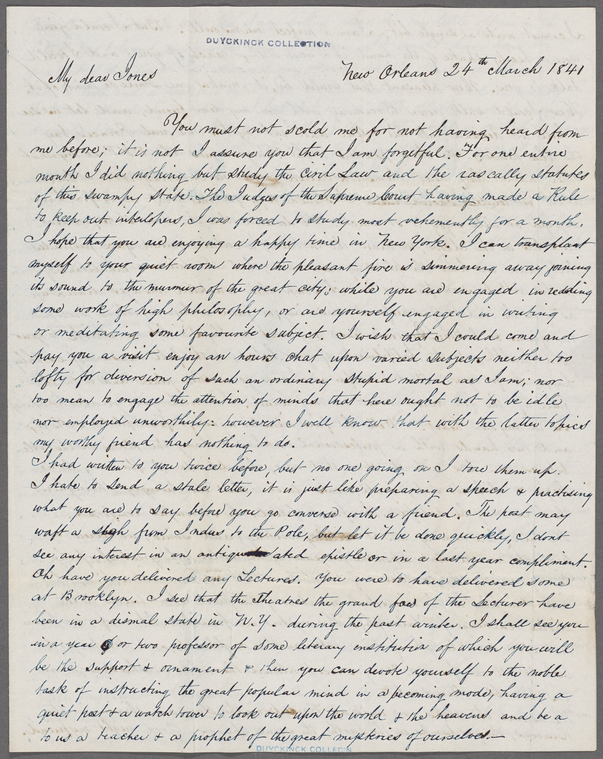 DUYCKINCK COLLECTION
My dear Jones New Orleans 24th March 1841
You must not scold me for not having heard from
me before; it is not I assure you that I am forgetful. For one entire
month I did nothing but study the Civil Law and the rascally statutes
of this swampy State. The Judges of the Supreme Court having made a Rule
to keep out interlopers, I was forced to study most vehemently for a month.
I hope that you are enjoying a happy time in New York. I can transplant
myself to your quiet room where the pleasant fire is simmering away joining
its sound to the murmur of the great city; while you are engaged in redding
some work of high philosophy, or are yourself engaged in writing
or meditating some favourite subject. I wish that I could come and
pay you a visit enjoy an hours chat upon varied subjects neither too
lofty for diversion of such an ordinary stupid mortal as I am; nor
too mean to engage the attention of minds that here ought not to be idle
nor employed unworthily: however I well know that with the latter topics
my worthy friend has nothing to do.
I had written to you twice before but no one going on I tore them up.
I hate to send a stale letter, it is just like preparing a speech & practising
what you are to say before you go converse with a friend. The post may
waft a sigh from Indus to the Pole, but let it be done quickly, I dont
see any interest in an antiquated epistle or in a last year compliment.
Oh have you delivered any Lectures. You were to have delivered some
at Brooklyn. I see that the Theatres the grand foe of the Lecturer have
been in a dismal state in N.Y. during the past winter. I shall see you
in a year or two professor of some literary institution of which you will
be the support & ornament & then you can devote yourself to the noble
task of instructing the great popular mind in a becoming mode, having a
quiet post & a watch tower to look out upon the world & the heavens and be a
to us a teacher & a prophet of the great mysteries of ourselves.—
DUYCKINCK COLLECN